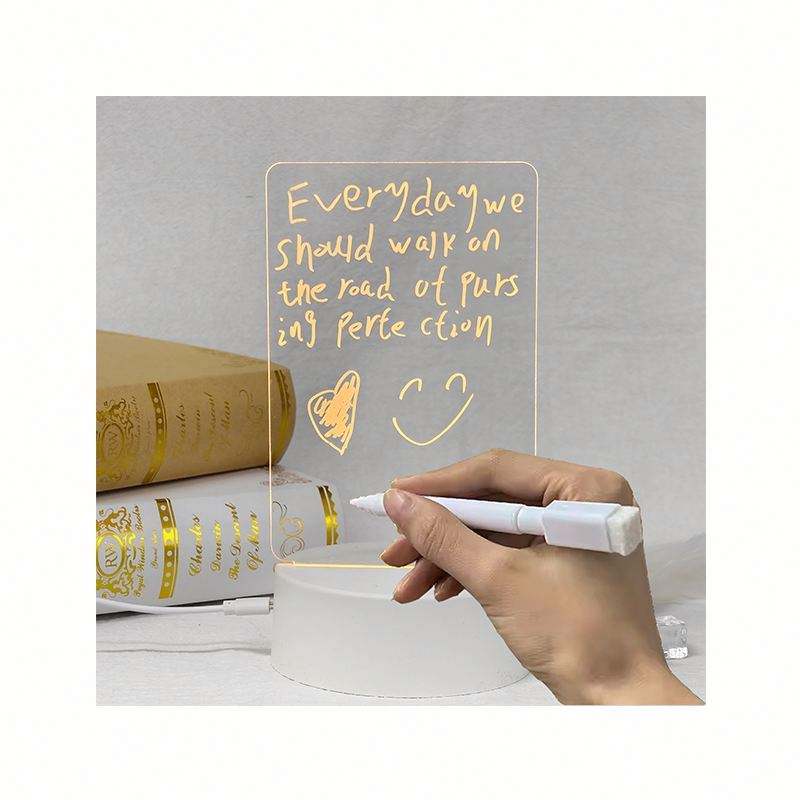 Everyday we
should walk on
the road of purs
ing perfe ction
Charles
Darwin
The Descent
Of Man
RW
Charles
Darwin
The Descent
Of Man
RW